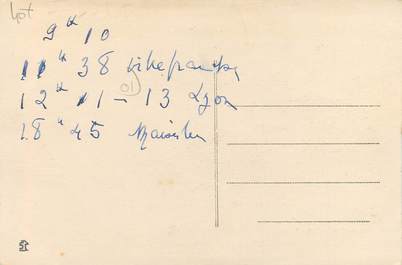 lot
9 h 10
11 h 38 Villefranche
12 h 11 - 13 Lyon
18 h 45